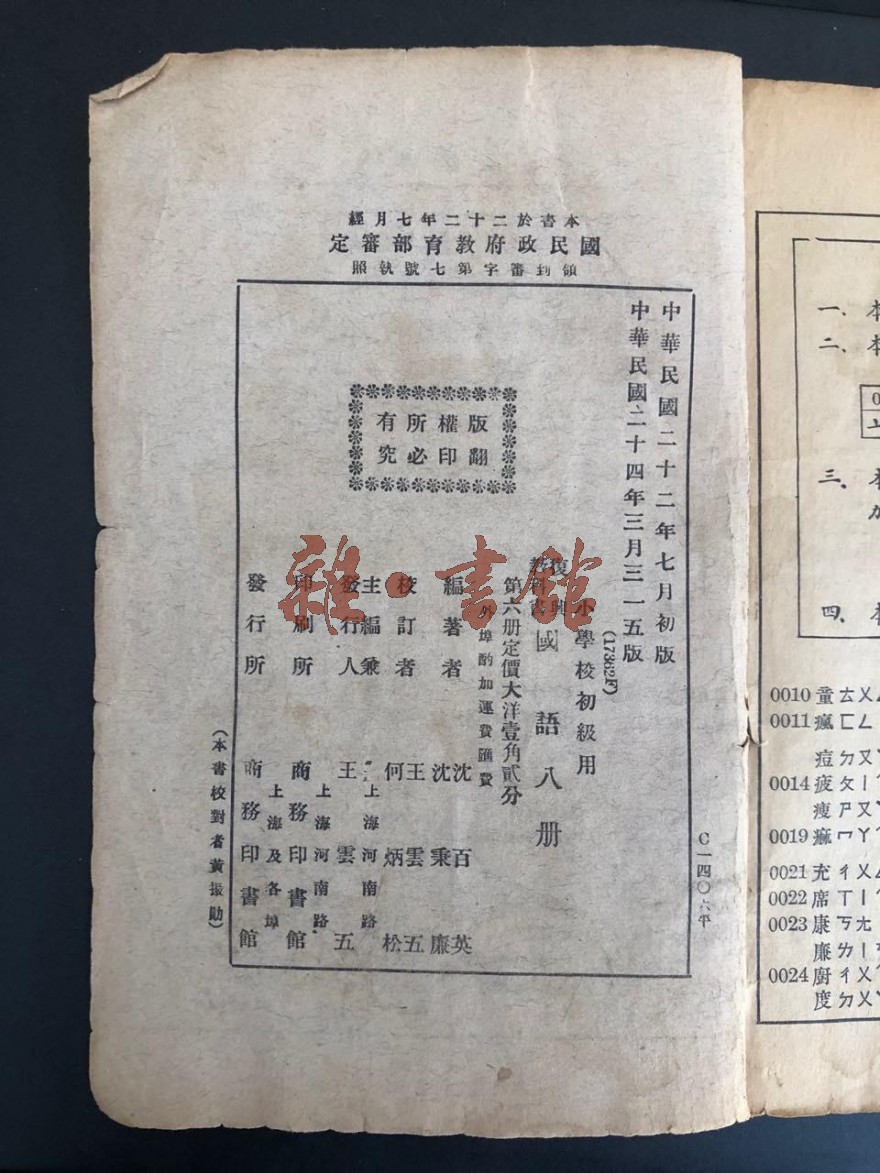 本書於二十二年七月經
國民政府教育部審定
領到審字第七號執照
中華民國二十二年七月初版
中華民國二十四年三月三一五版
(17362F)
小學校初級用
復興教科書
國語八册
第六册定價大洋壹角貳分
外埠酌加運費匯費
版權所有
翻印必究
編著者 沈百英 沈秉廉
校訂者 王雲五 何炳松
主編兼發行人 王雲五
上海河南路
印刷所 商務印書館
上海河南路
發行所 商務印書館
上海及各埠
(本書校對者黃振勛)
C一四〇六平
雜·書館
一、本
二、本
三、本
四、本
0010 童 ㄊㄨㄥ
0011 瘋 ㄈㄥ
痘 ㄉㄡ
0014 疲 ㄆㄧ
瘦 ㄕㄡ
0019 痲 ㄇㄚ
0021 充 ㄔㄨㄥ
0022 席 ㄒㄧ
0023 康 ㄎㄤ
廉 ㄌㄧ
0024 廚 ㄔㄨ
度 ㄉㄨ